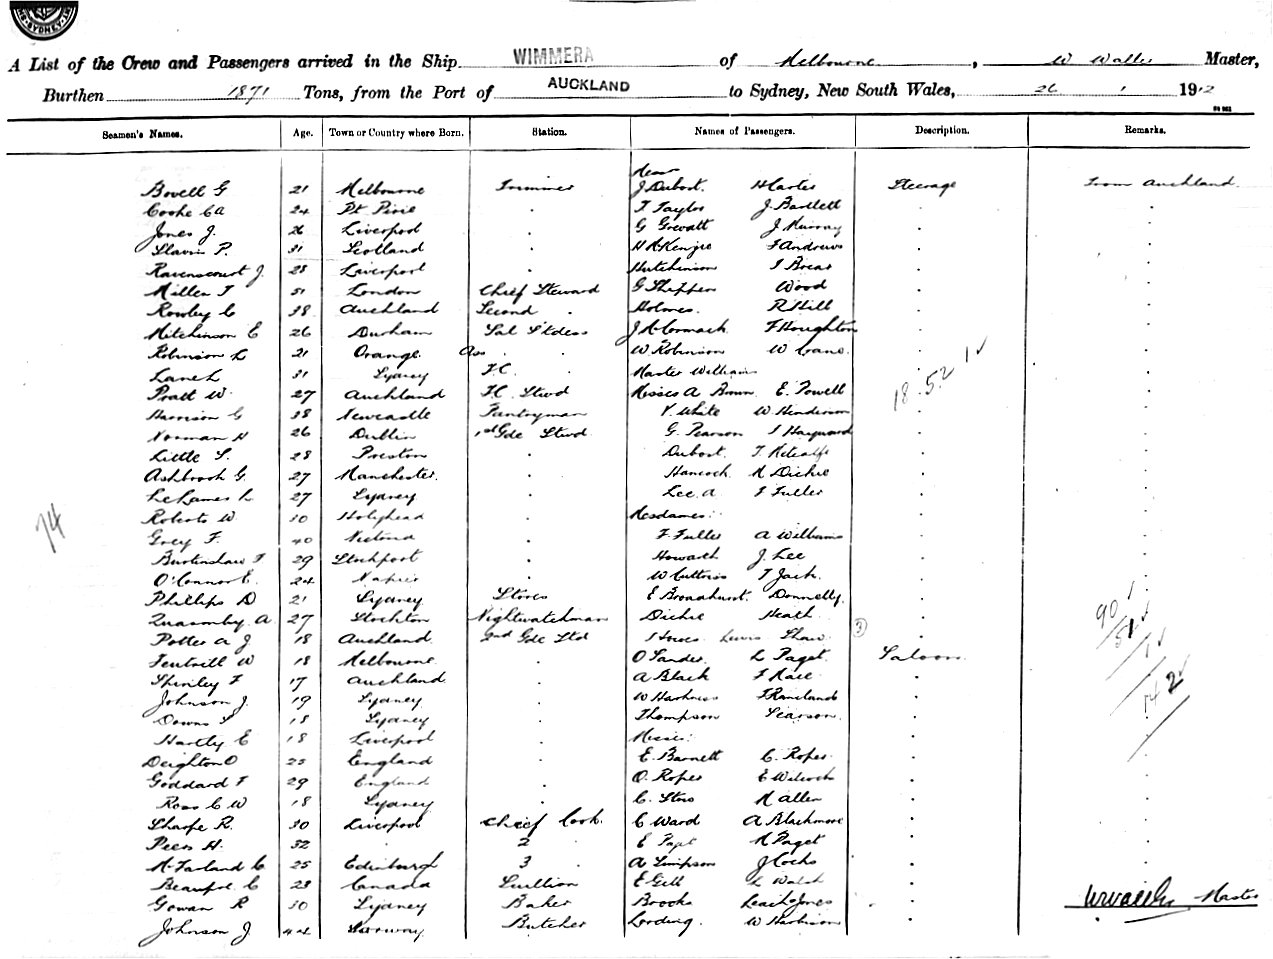 SYDNEY
A List of the Crew and Passengers arrived in the Ship WIMMERA of Melbourne, W Waller Master,
Burthen 1871 Tons, from the Port of AUCKLAND to Sydney, New South Wales, 26 1 1912
Seamen's Names. Age. Town or Country where Born. Station. Names of Passengers. Description. Remarks.
Messrs
Bovell G 21 Melbourne Trimmer J Dubost. H Carter Steerage From Auckland
Cooke CA 24 Pt Pirie . T Taylor J. Bartlett
Jones J. 26 Liverpool . G Grevatt J Murray
Slavin P. 31 Scotland . H McKenzie F Andrews
Ravenscourt J. 28 Liverpool . Hutchinson
Miller T 51 London Chief Steward G Wood
Rowley C 38 Auckland Second . Holmes. R Hill
Mitchinson E 26 Durham Sal Stdess J McCormack F Houghton
Robinson L 21 Orange. Ass . . W Robinson W Cane.
Lane L 31 Sydney F.C. . Master Williams 18.52 1 ✓
Pratt W. 27 Auckland F.C. Stwd Misses A Brown E. Powell
Harrison G 38 Newcastle Pantryman V. White W Henderson
Norman H 26 Dublin 1st Gde Stwd G. Pearson I Hayward
Little S. 28 Preston . Dubost. T. Metcalfe
Ashbrook G. 27 Manchester. . Hancock. M Dickie
27 Sydney . Lee. A F Fuller
74
Roberts W 30 Holyhead . Mesdames:
Grey F. 40 Victoria . F. Fuller A Williams
29 Stockport . Howarth J. Lee
O'Connor E. 24 Napier . W T Jack.
Phillips D 21 Sydney Stores E Broadhurst. Donnelly.
Quarmby A 27 Stockton Nightwatchman Dickie Heath 90 ✓
Potter A J 18 Auckland 2nd Gde Std Lewis Shaw. (3) 51 ✓
W 18 Melbourne . O L Paget. Saloon. 1 ✓
Shirley F 17 Auckland . A Black 142 ✓
Johnson J. 19 Sydney . W Harkness
Downs S 18 Sydney . Thompson Pearson.
Hartly E 18 Liverpool . Misses:
Deighton O 25 England . E. Barnett C. Roper
Goddard T 29 England . O. Roper
Ross C W 18 Sydney . C. M Allen
Sharpe R. 30 Liverpool Chief Cook. C Ward A Blackmore
Peers H. 32 . 2 . E M Paget
McFarland C 25 Edinburgh 3 . A Simpson J Cocks
C 23 Canada Scullion E Gill L Walsh
Gowan R 30 Sydney Baker Brooks Jones W Waller Master
Johnson J 44 Norway. Butcher Lording. W Harbison